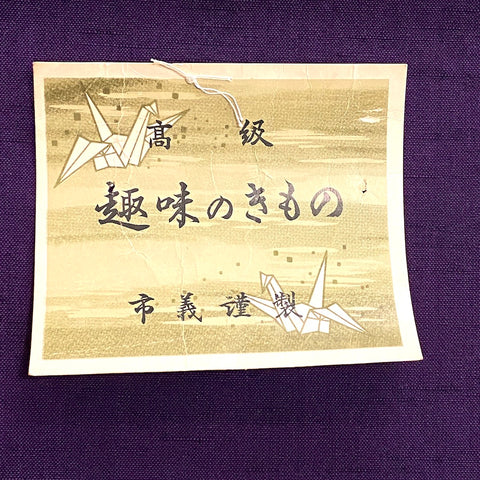 髙級
趣味のきもの
市義謹製